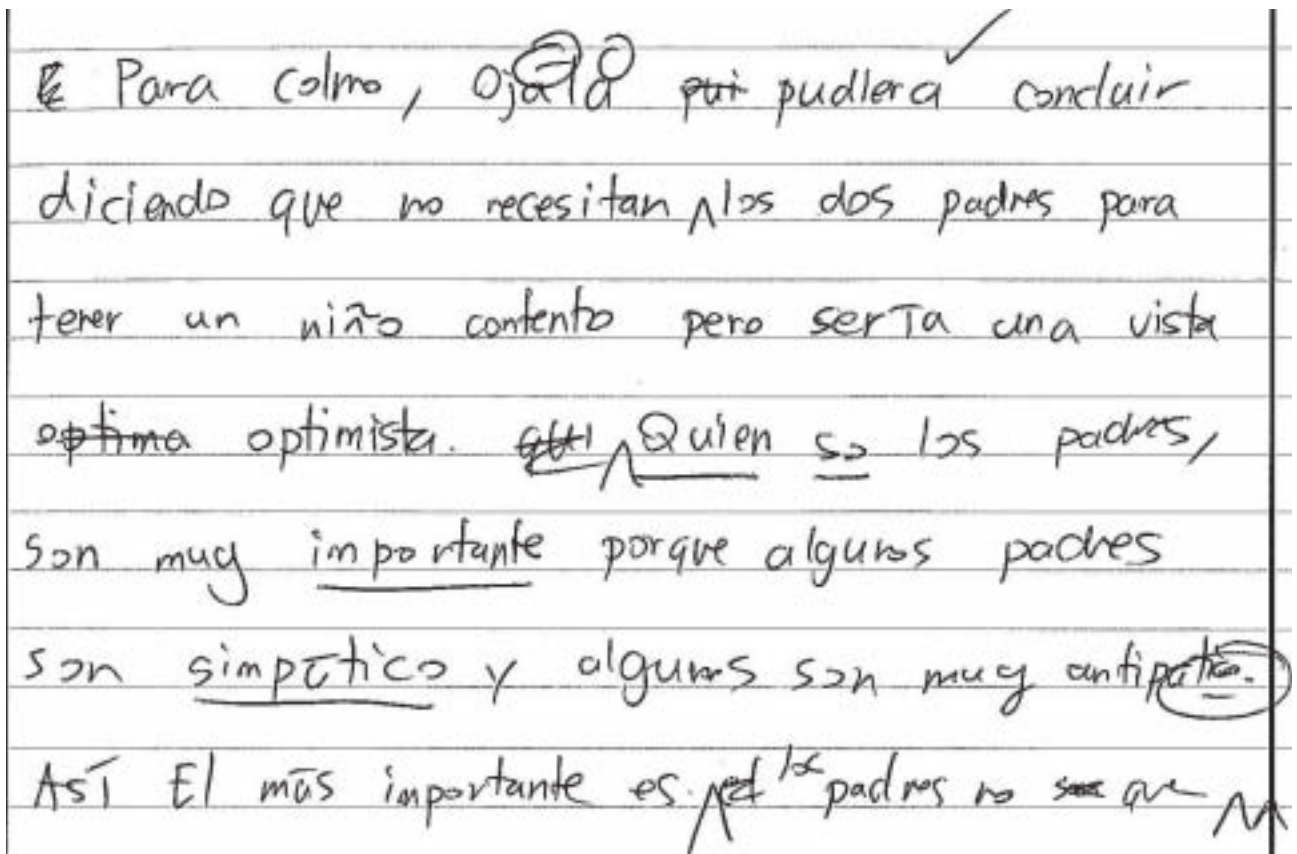 Para colmo, Ojalá pui pudiera concluir
diciendo que no necesitan los dos padres para
tener un niño contento pero sería una vista
optima optimista. qui Quien so los padres,
son muy importante porque algunos padres
son simpático y algunos son muy antipático.
Así El más importante es los padres no que